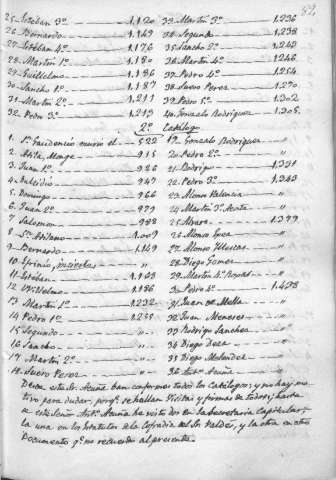 82
25 Esteban 3º 1.120 33 Martin 3º 1.236
26 Bernardo 1.149 34 Segundo 1.238
27 Esteban 4º 1.176 35 Sancho 2º 1.242
28 Martin 1º 1.180 36 Martin 4º 1.246
29 Guillelmo 1.186 37 Pedro 4º 1.254
30 Sancho 1º 1.187 38 Suero Perez 1.270
31 Martin 2º 1.211 39 Pedro 5º 1.302
32 Pedro 3º 1.213 40 Gonzalo Rodriguez 1.305
2º Catálogo
1 Sn Facidencio murio el 522 19 Gonzalo Rodriguez
2 Atila Monge 915 20 Pedro 2º "
3 Juan 1º 926 21 Rodrigo 1.331
4 947 22 Pedro 3º 1.343
5 Domingo 966 23 Alonso Valencia "
6 Juan 2º 979 24 Martin Acosta "
7 Salomon 988 25 Alvaro 1.379
8 Sn Atilano 1.009 26 Alonso Egea "
9 Bernardo 1.149 27 Alonso Illescas "
10 Efrinio, inciertos " 28 Diego Gomez "
11 Esteban 1.168 29 Martin 4º "
12 Vn Guillelmo 1.186 30 Pedro 4º 1.438
13 Martin 1º 1.232 31 Juan de Mella "
14 Pedro 1º 1.255 32 Juan Meneses "
15 Segundo " 33 Rodrigo Sanchez "
16 Sancho " 34 Diego Deza "
17 Martin 2º " 35 Diego Melendez "
18 Suero Perez " 36 Antº Acuña "
Desde este Sr Acuña ban conformes todos los Catálogos; y no hay mo-
tivo para dudar, porqe se hallan Visitas y firmas de todos; hasta
de este Sr Antº Acuña he visto dos en la Secretaria Capitular;
la una en los Estatutos de la Cofradia del Sr Valdés, y la otra en otro
Documento qe no recuerdo al presente.